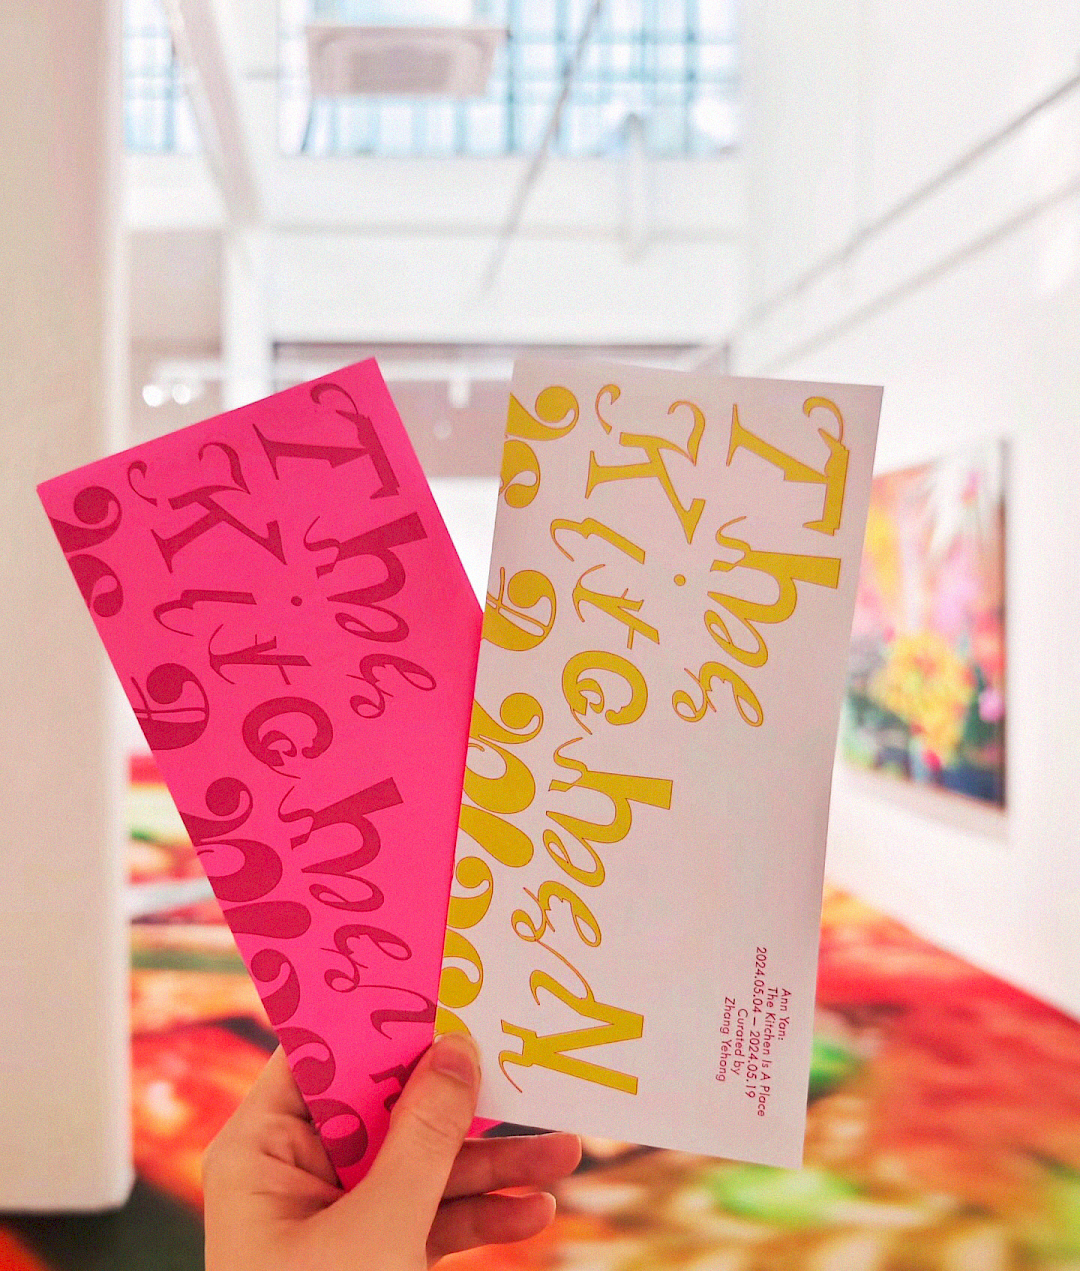 The
Kitchen
The
Kitchen
Ann Yan:
The Kitchen Is A Place
2024.05.04 – 2024.05.19
Curated by
Zhang Yehong